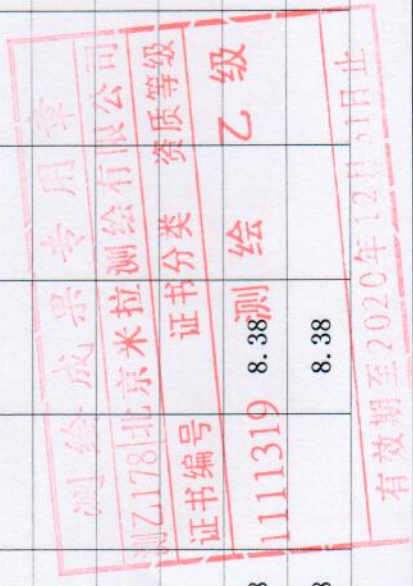 测绘成果专用章
测乙178 北京米拉测绘有限公司
证书编号 证书分类 资质等级
1111319 测绘 乙级
有效期至2020年12月31日止
8.38
8.38